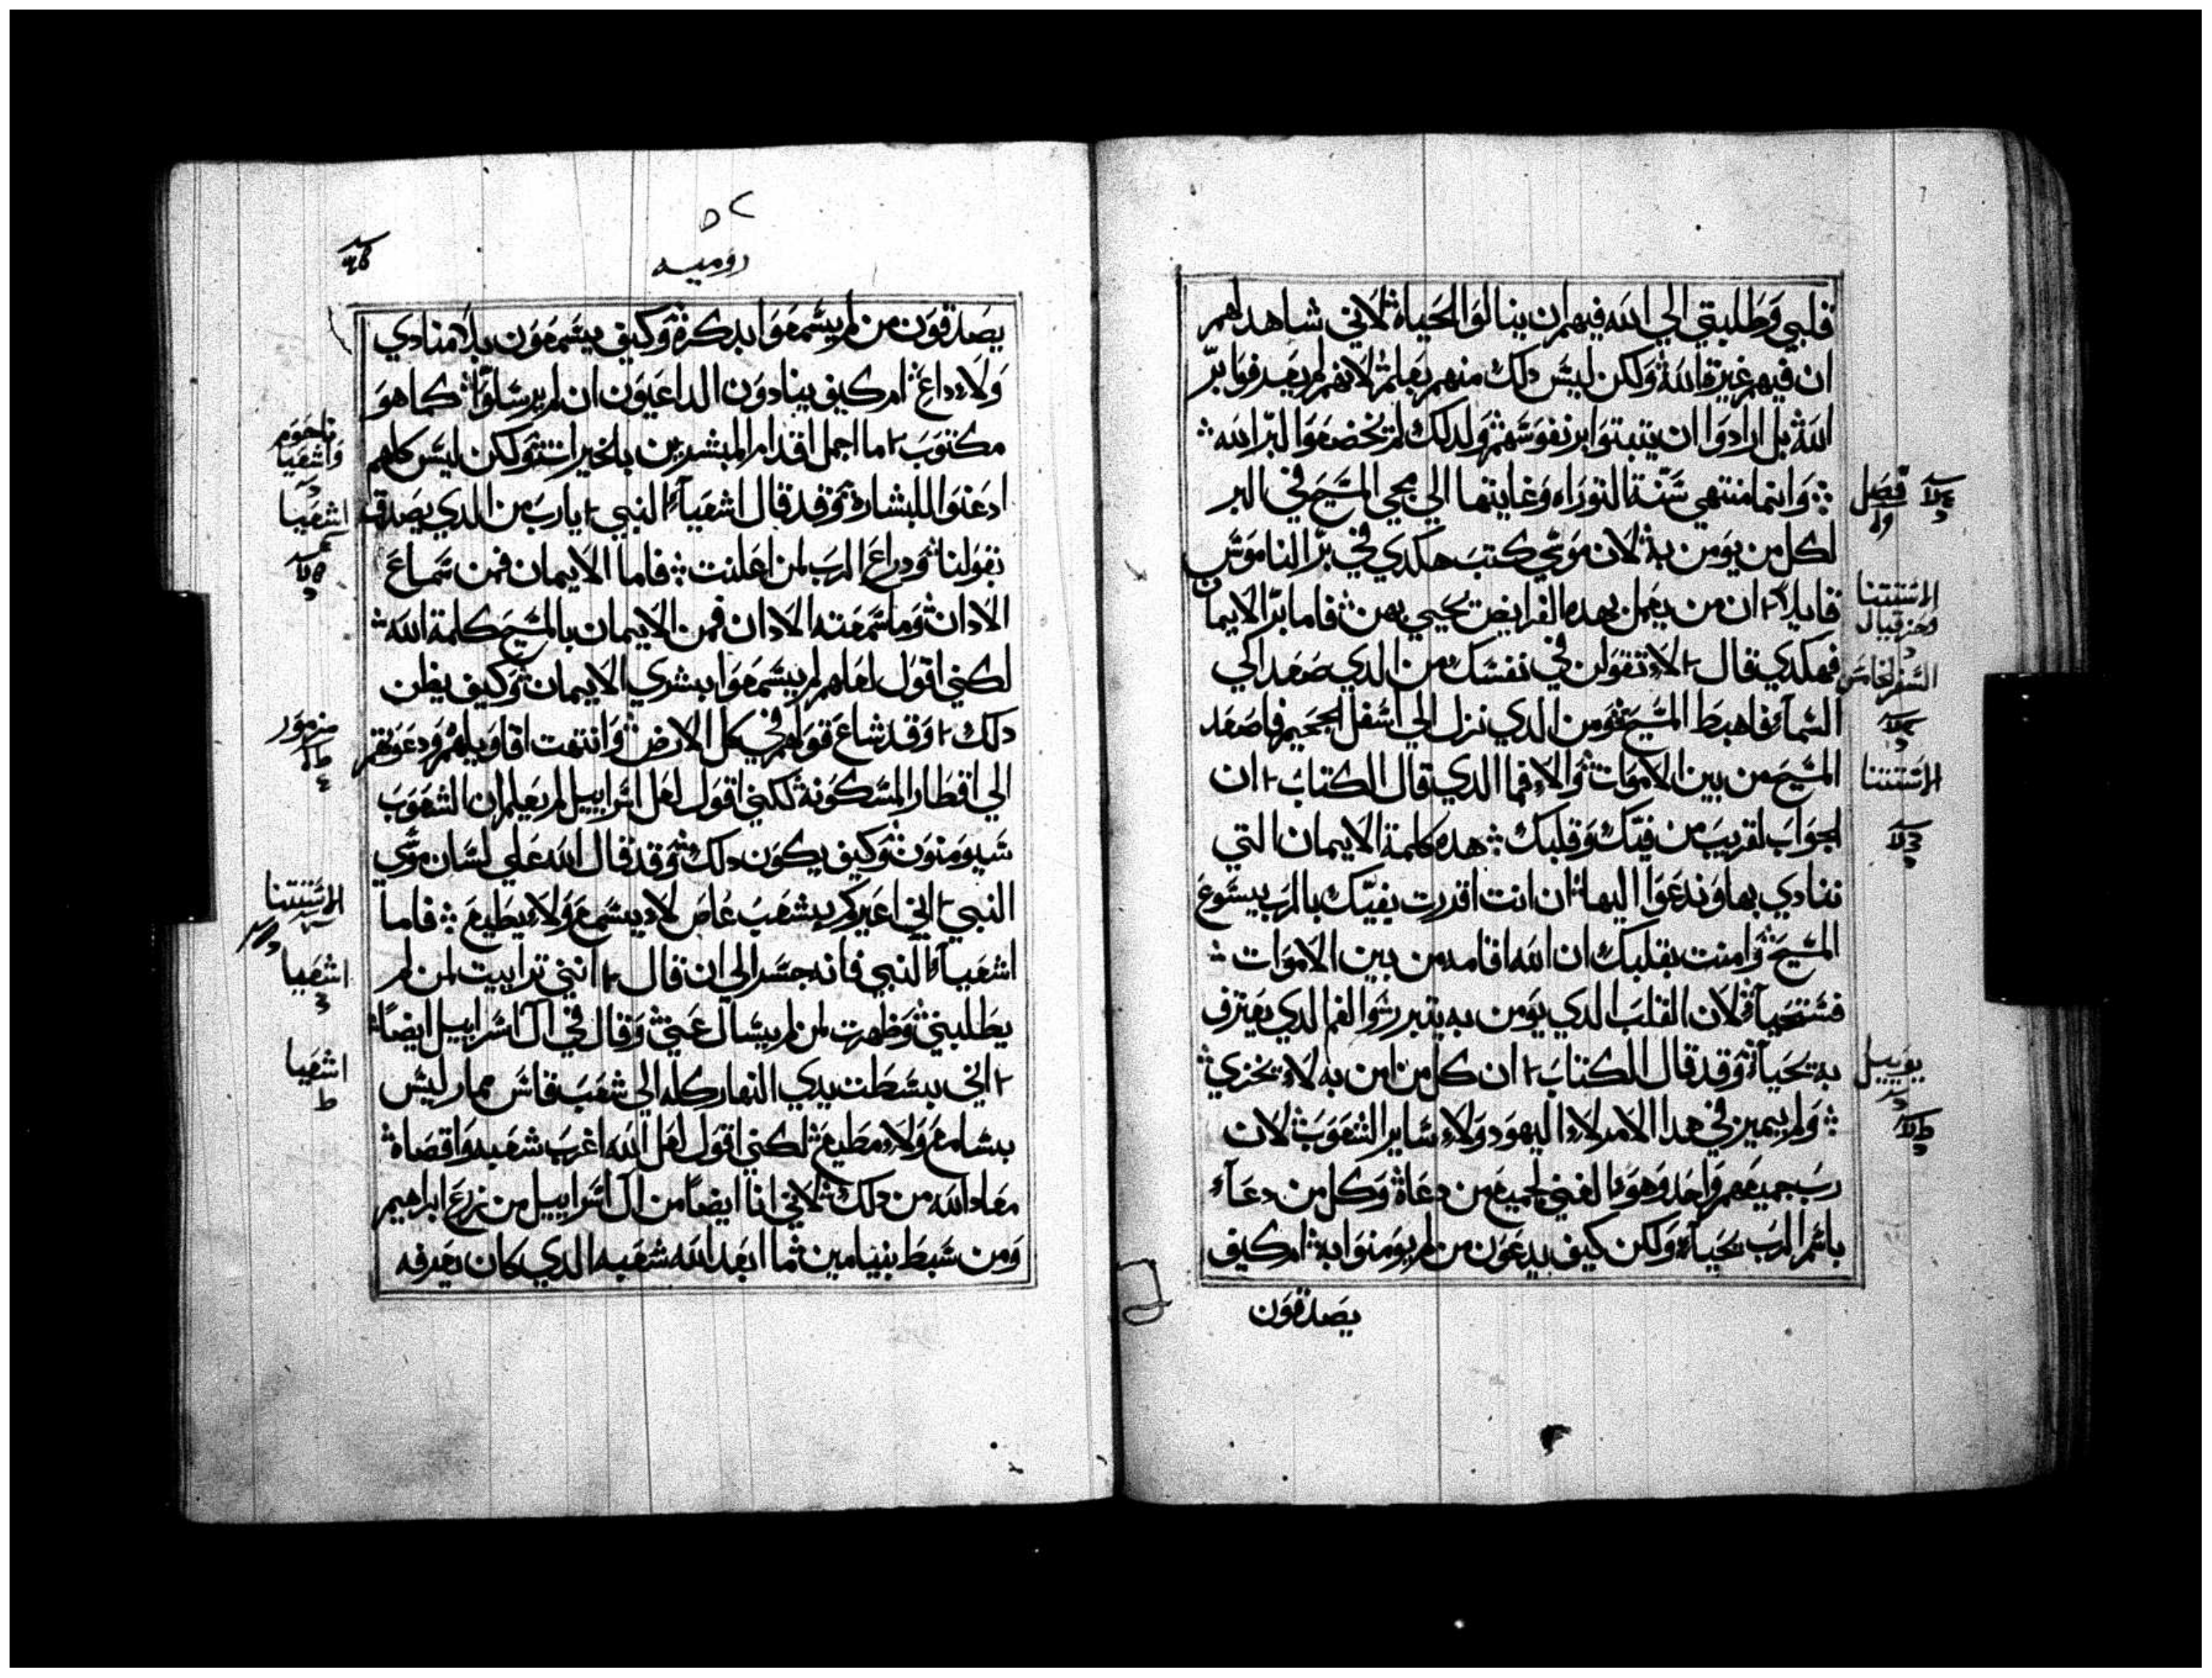 قلبي وَطلبتي الي الله فيهم ان ينالوا الحَياة لاني شاهد لهم
ان فيهم غيرة الله وَلكن ليسَ دلك منهم بعلم لانهم لم يعرفوا برّ
الله بل ارادوَا ان يثبتوَا بر نفوسَهم وَلدلك لم يخضعَوا لبرّ الله
وَانما منتهي سنّة التوراه وَغايتها الي مجي المسَيحَ في البر
فصَل
لكل من يوَمن به لان موَسي كتبَ هكدي في برّ الناموَسَ
الاستثنا
وحزقيال
قايلاً ان من يعَمل بهده الفرايض يحَيي بهن فاما برّ الايمان
فهكدي قال لا تقوَلن في نفسَك من الدي صَعَد الي
السفر الخامس
السَمآء فاهبط المسَيحَ وَمن الدي نزل الي اسَفل الجحَيم فاصَعَد
المسَيحَ من بين الاموَات وَالا فما الدي قال الكتابَ ان
الاستثنا
الجوَابَ لقريبَ من فيّك وَقلبك هده كلمة الايمان التي
ننادي بها وَندعوَا اليها ان انت اقررت بفيّك بالربَ يسَوعَ
المسَيحَ وَامنت بقلبك ان الله اقامه من بين الاموَات
فسَتحَيآ لان القلبَ الدي يوَمن به يتبرر وَالفم الدي يعَترف
به يحَيآ وَقد قال الكتابَ ان كل من امن به لا يخزي
يوييل
وَلم يميز في هدا الامر لا اليهوَد وَلا سَاير الشعَوَبَ لان
ربَ جميعَهم وَاحَد وَهوَ الغني لجميعَ من دعَاه وَكل من دعَآء
باسَم الربَ يحَيآ وَلكن كيف يدعَوَن من لم يوَمنوَا به ام كيف
يصَدقوَن
٥٢
روميه
يصَدقوَن من لم يسَمعَوَا بدكرة وَكيف يسَمعَوَن بلا منادي
وَلا داعَ ام كيف ينادوَن الداعَيوَن ان لم يرسَلوَا كما هوَ
ناحوم
واشعيا
مكتوَبَ ما اجمل اقدام المبشرين بالخيرات وَلكن ليسَ كلهم
ادعَنوَا للبشارة وَقد قال اشعَيآء النبي ياربَ من الدي يصَدق
اشعيا
بقوَلنا وَدراعَ الربَ لمن اعَلنت فاما الايمان فمن سَماعَ
الادان وَما سَمعَته الادان فمن الايمان بالمسَيحَ كلمة الله
لكني اقوَل لعَلهم لم يسَمعَوَا بشري الايمان وَكيف يظن
دلك وَقد شاعَ قوَلهم في كل الارض وَانتهت اقاوَيلهم وَدعَوَتهم
مزمور
الي اقطار المسَكوَنة لكني اقوَل لعَل اسَراييل لم يعَلم ان الشعَوَبَ
سَيوَمنوَن وَكيف يكوَن دلك وَقد قال الله عَلي لسَان موَسي
النبي اني اغَيركم بشعَبَ عَاص لا يسَمعَ وَلا يطيعَ فاما
الاستثنا
اشعَيآء النبي فانه جسَر الي ان قال انني تراييت لمن لم
اشعيا
يطلبني وَظهرت لمن لم يسَال عَني وَقال في ال اسَراييل ايضاً
اني بسَطت يدي النهار كله الي شعَبَ قاسَ ممار ليسَ
اشعيا
بسَامعَ وَلا مطيعَ لكني اقوَل لعَل الله اغَربَ شعَبه وَاقصَاه
معَاد الله من دلك لاني انا ايضاً من ال اسَراييل من زرعَ ابراهيم
وَمن سَبط بنيامين ما ابعَد الله شعَبه الدي كان يعَرفه